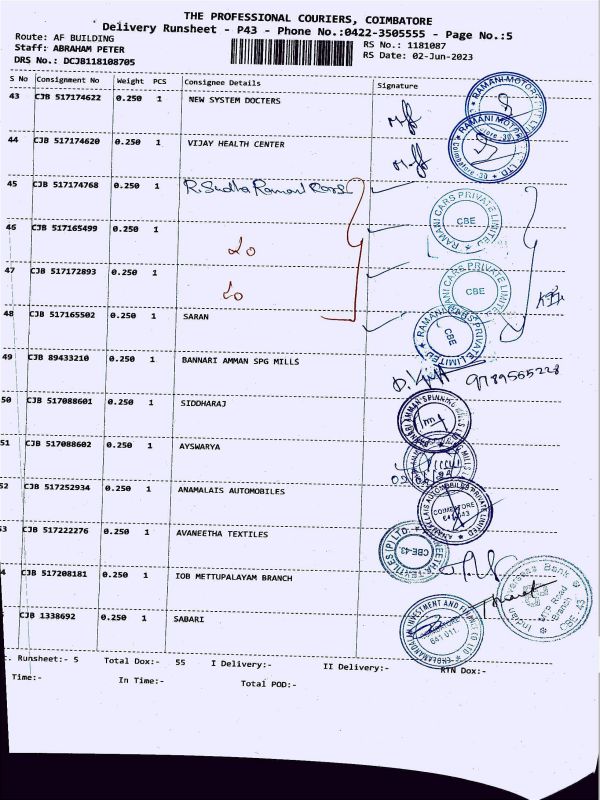 THE PROFESSIONAL COURIERS, COIMBATORE
Delivery Runsheet - P43 - Phone No.:0422-3505555 - Page No.:5
Route: AF BUILDING
Staff: ABRAHAM PETER
RS No.: 1181087
DRS No.: DCJB118108705
RS Date: 02-Jun-2023
S No Consignment No Weight PCS Consignee Details Signature
43 CJB 517174622 0.250 1 NEW SYSTEM DOCTERS
RAMANI MOTOR
44 CJB 517174620 0.250 1 VIJAY HEALTH CENTER
RAMANI MOTOR LTD
45 CJB 517174768 0.250 1 R. Sudha Ramani Cars
RAMANI CARS PRIVATE LIMITED CBE
46 CJB 517165499 0.250 1
47 CJB 517172893 0.250 1
RAMANI CARS PRIVATE LIMITED CBE
48 CJB 517165502 0.250 1 SARAN
RAMANI CARS PRIVATE LIMITED CBE
49 CJB 89433210 0.250 1 BANNARI AMMAN SPG MILLS
9789555228
50 CJB 517088601 0.250 1 SIDDHARAJ
BANNARI AMMAN SPINNING MILLS
51 CJB 517088602 0.250 1 AYSWARYA
MILLS
52 CJB 517252934 0.250 1 ANAMALAIS AUTOMOBILES
ANAMALLAIS AUTOMOBILES PRIVATE LIMITED COIMBATORE 641 043
53 CJB 517222276 0.250 1 AVANEETHA TEXTILES
TEXTILES (P) LTD. CBE-43
4 CJB 517208181 0.250 1 IOB METTUPALAYAM BRANCH
Indian Overseas Bank MTP Road Branch CBE-43
CJB 1338692 0.250 1 SABARI
INVESTMENT AND FINANCE CO LTD 641 011
. Runsheet:- 5 Total Dox:- 55 I Delivery:- II Delivery:- RTN Dox:-
Time:- In Time:- Total POD:-